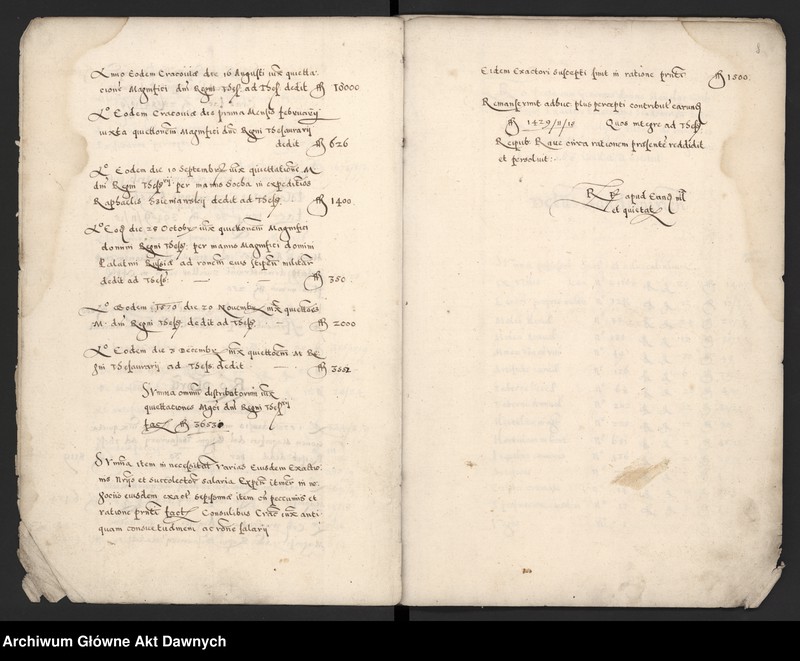 Anno Eodem Cracoviae die 16 Augusti iux quietta
cione Magnifici dni Regni Thes ad Thes dedit ffl 18000
Ao Eodem Cracoviae die prima Mensis februarij
iuxta quiettonem Magnifici dni Regni Thesaurarij
dedit ffl 626
Ao Eodem die 10 Septembr iux quiettatione M
dni Regni Thesrij per manus Socha in expeditios
Raphaelis dedit ad Thes ffl 1400
Ao Eod die 28 Octobr iux quiettonem Magnifici
domini Regni Thes per manus Magnifici domini
Palatini Russiae ad ronem eius stipen militar
dedit ad Thes ffl 350
Ao Eodem 1570 die 20 Novembr iux quiettoes
M. dni Regni Thes dedit ad Thes ffl 2000
Ao Eodem die 7 Decembr iux quiettoem M Re
gni Thesaurarij ad Thes dedit ffl
Summa omnium distributorum iux
quiettaciones Mgci dni Regni Thesrij
fact ffl 36530
Summa item in necessitat varias Eiusdem Exacto
ris et succolector salaria Expen itiner in ne
gocio eiusdem exact item cum pecunijs et
ratione prnti fact Consulibus Crac iux anti
quam consuetudinem ac rone salarij
Eidem Exactori suscepti sunt in ratione prnti ffl 1500
Remanserunt adhuc plus percepti contribut earund
ffl 1429/11/ Quos integre ad Thes
Reipub R que circa rationem praesente reddidit
et persoluit :
R apud Eand
et quietat
Archiwum Główne Akt Dawnych